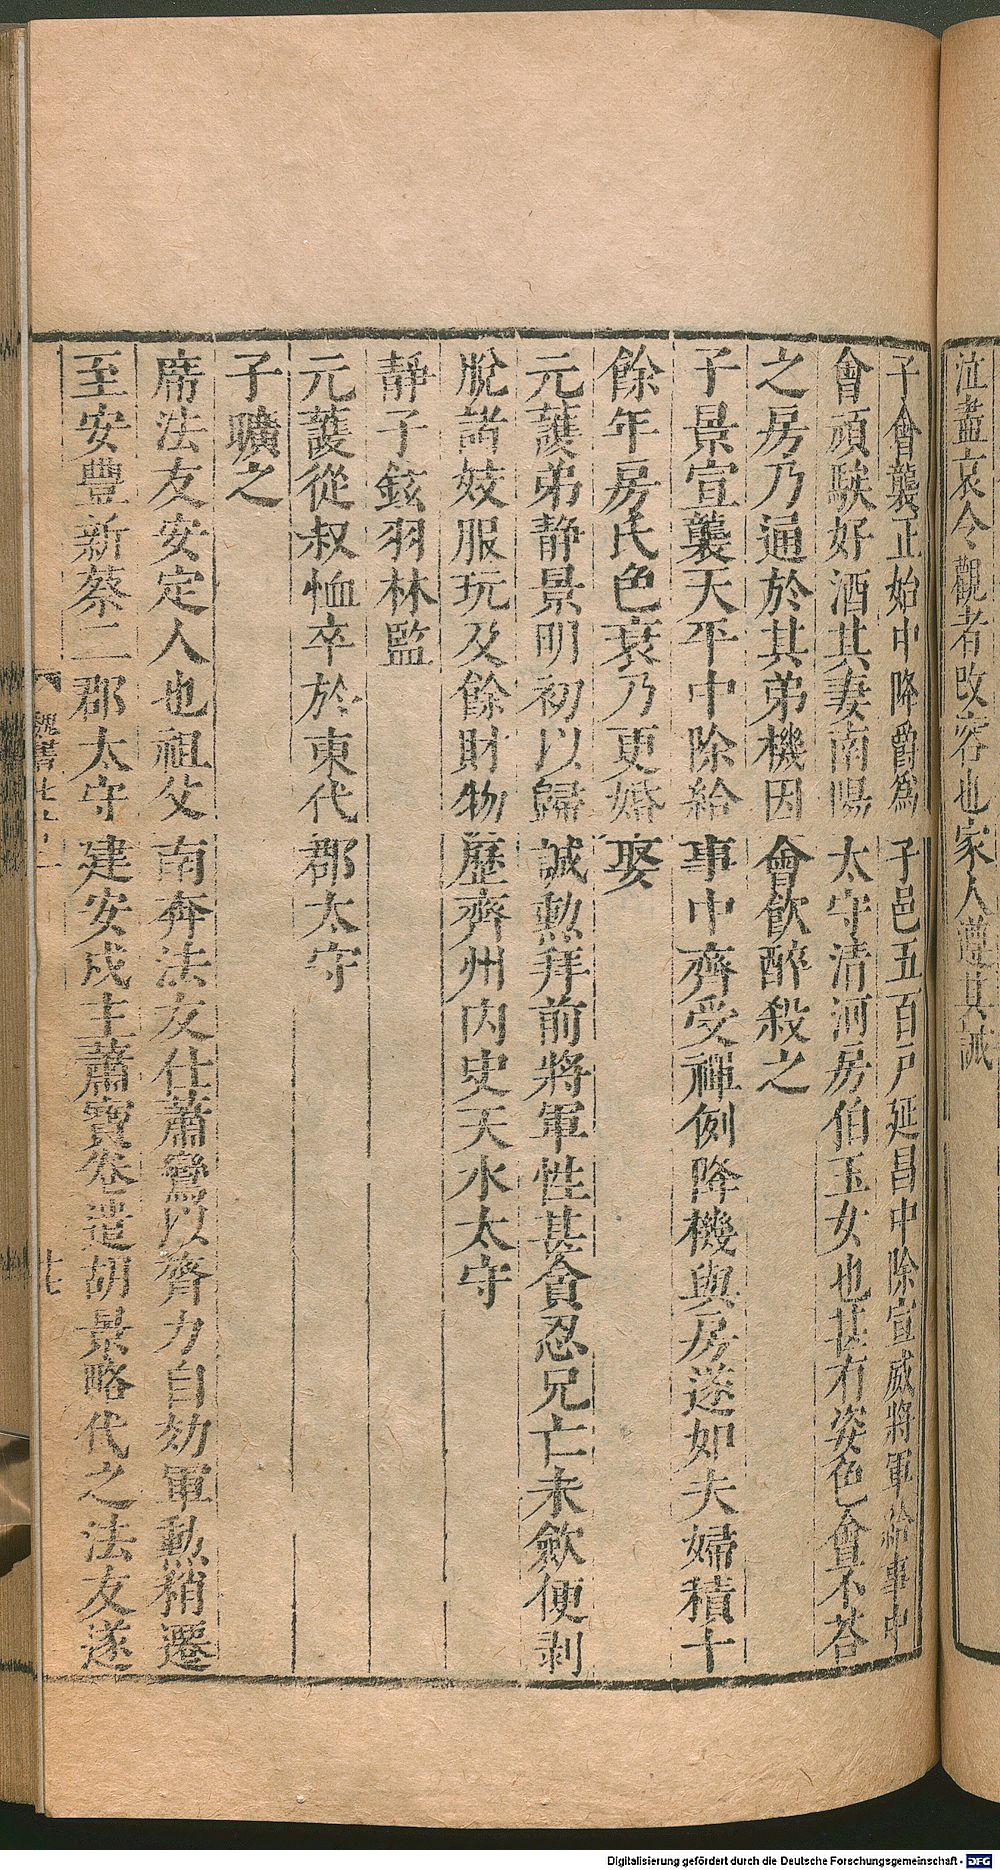 泣盡哀令觀者改容也家人遵其誡
子會襲正始中降爵爲子邑五百戸延昌中除宣威將軍給事中
會頑騃好酒其妻南陽太守清河房伯玉女也甚有姿色會不荅
之房乃通於其弟機因會飲醉殺之
子景宣襲天平中除給事中齊受禪例降機與房遂如夫婦積十
餘年房氏色衰乃更婚娶
元護弟静景明初以歸誠勲拜前將軍性甚貪忍兄亡未斂便剥
脫諸妓服玩及餘財物歷齊州内史天水太守
靜子鉉羽林監
元護從叔恤卒於東代郡太守
子曠之
席法友安定人也祖父南奔法友仕蕭鸞以膂力自効軍勲稍遷
至安豐新蔡二郡太守建安戍主蕭寳卷遣胡景略代之法友遂
魏書
廿七
Digitalisierung gefördert durch die Deutsche Forschungsgemeinschaft - DFG